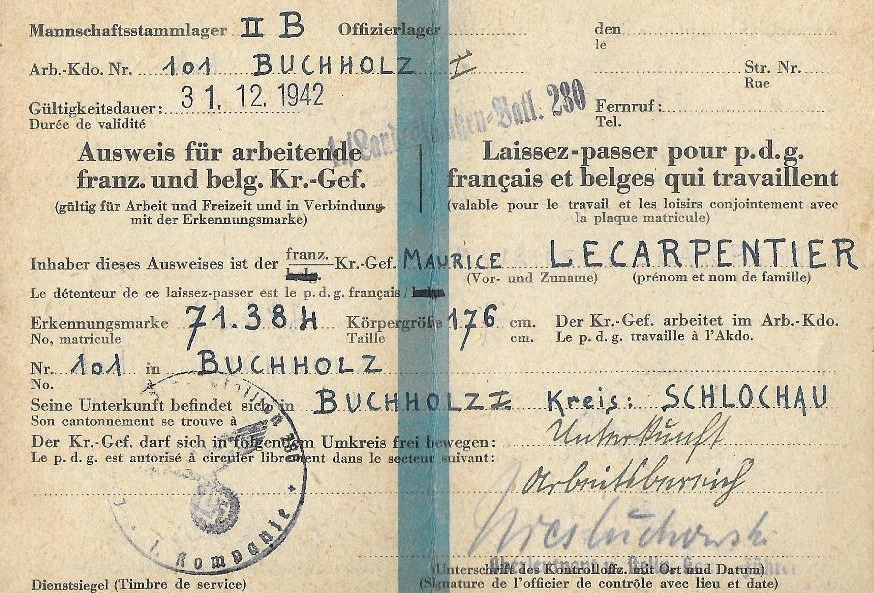 Mannschaftsstammlager II B Offizierlager den
le
Arb.-Kdo. Nr. 101 BUCHHOLZ I Str. Nr.
Rue
Gültigkeitsdauer: 31. 12. 1942
Durée de validité
Batl. 280
Fernruf:
Tel.
Ausweis für arbeitende
franz. und belg. Kr.-Gef.
(gültig für Arbeit und Freizeit und in Verbindung
mit der Erkennungsmarke)
Laissez-passer pour p.d.g.
français et belges qui travaillent
(valable pour le travail et les loisirs conjointement avec
la plaque matricule)
Inhaber dieses Ausweises ist der franz. Kr.-Gef. MAURICE LECARPENTIER
(Vor- und Zuname) (prénom et nom de famille)
Le détenteur de ce laissez-passer est le p.d.g. français /
Erkennungsmarke 71.384 Körpergröße 176 cm. Der Kr.-Gef. arbeitet im Arb.-Kdo.
No. matricule Taille cm. Le p.d.g. travaille à l'Akdo.
Nr. 101 in BUCHHOLZ
No. à
Seine Unterkunft befindet sich in BUCHHOLZ I Kreis: SCHLOCHAU
Son cantonnement se trouve à
Der Kr.-Gef. darf sich in folgendem Umkreis frei bewegen: Unterkunft
Le p.d.g. est autorisé à circuler librement dans le secteur suivant:
Arbeitsbereich
1. Kompanie
(Unterschrift des Kontrolloffz. mit Ort und Datum)
Dienstsiegel (Timbre de service) (Signature de l'officier de contrôle avec lieu et date)